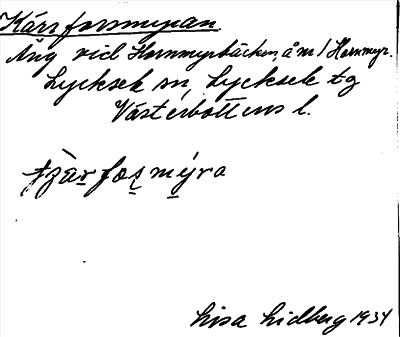 Kärrforsmyran.
Äng vid Hornmyrbäcken, å n:r 1 Hornmyr.
Lycksele sn, Lycksele tg
Västerbottens l.
Lisa Lidberg 1934